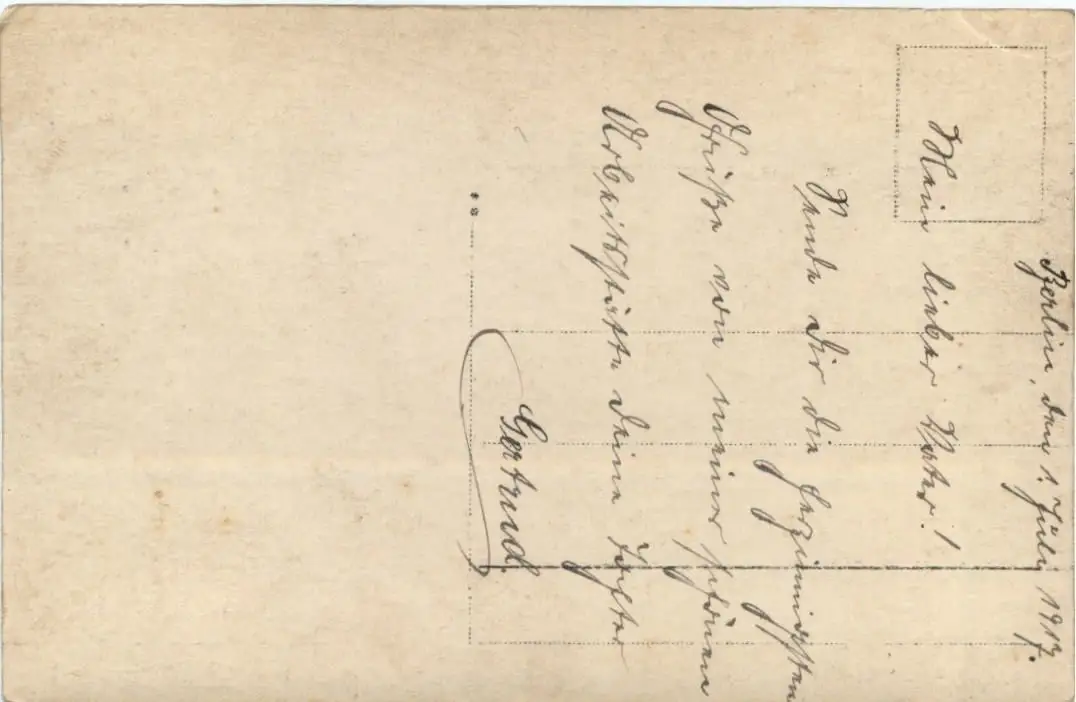 Berlin, den 1. Juli 1917.
Mein lieber Vater!
Sende dir die herzinnigsten
Grüße von meiner schönen
Arbeitsstätte deine Tochter
Gertrud.